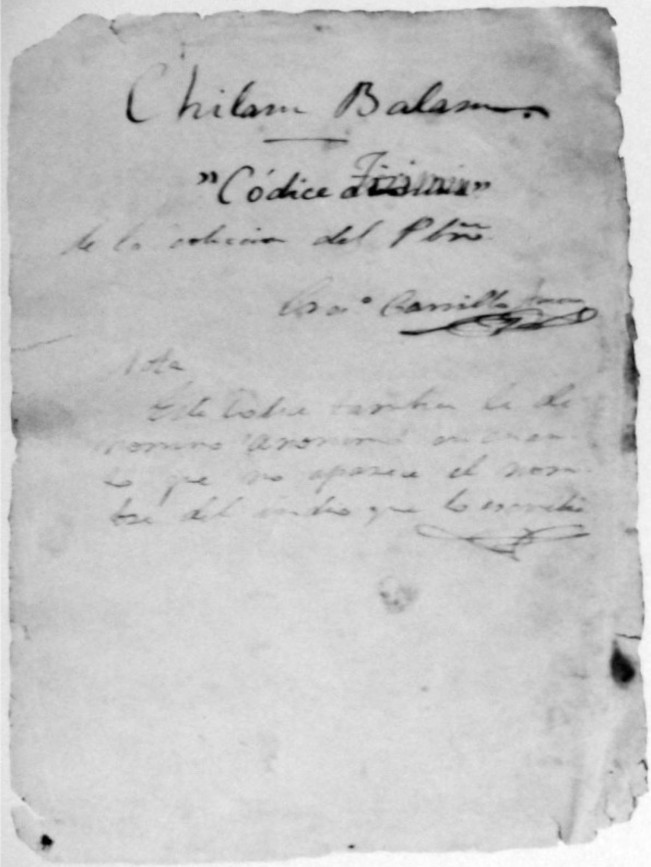 Chilam Balam.
"Códice Tizimin"
de la coleccion del Pbro
Cres.º Carrillo Ancona
Nota
Este Códice tambien le de
nomino anonimo en cuan-
to que no aparece el nom-
bre del indio que lo escribió